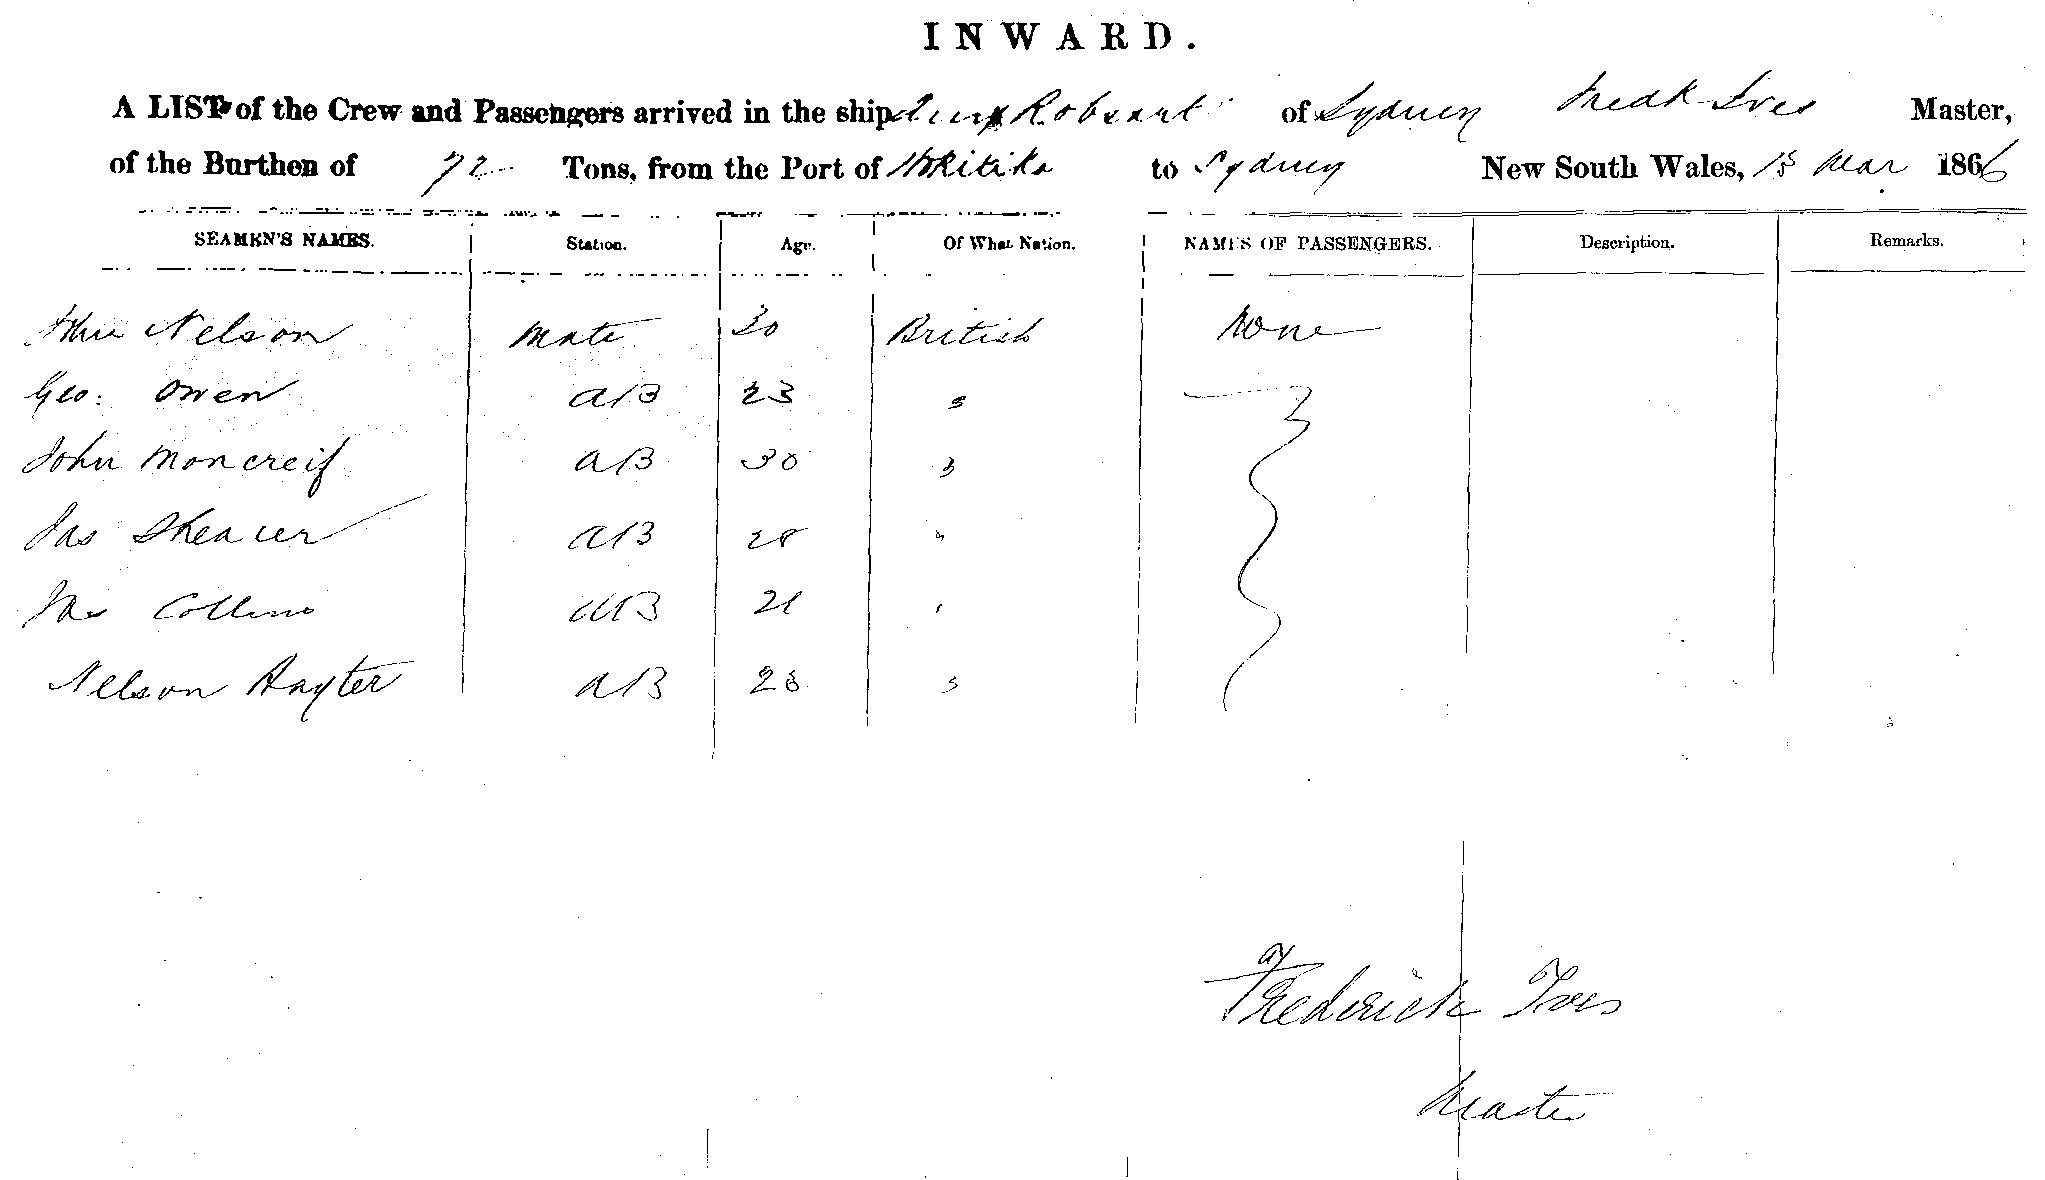 INWARD.
A LIST of the Crew and Passengers arrived in the ship Amy Robsart of Sydney Fredk Ives Master,
of the Burthen of 72 Tons, from the Port of Hokitika to Sydney New South Wales, 13 Mar 1866
SEAMEN'S NAMES. Station. Age. Of What Nation. NAMES OF PASSENGERS. Description. Remarks.
John Nelson Mate 30 British None
Geo: Owen AB 23 "
John Moncreif AB 30 "
Jas Shearer AB 28 "
Jas Collins AB 21 "
Nelson Hayter AB 23 "
Frederick Ives
Master